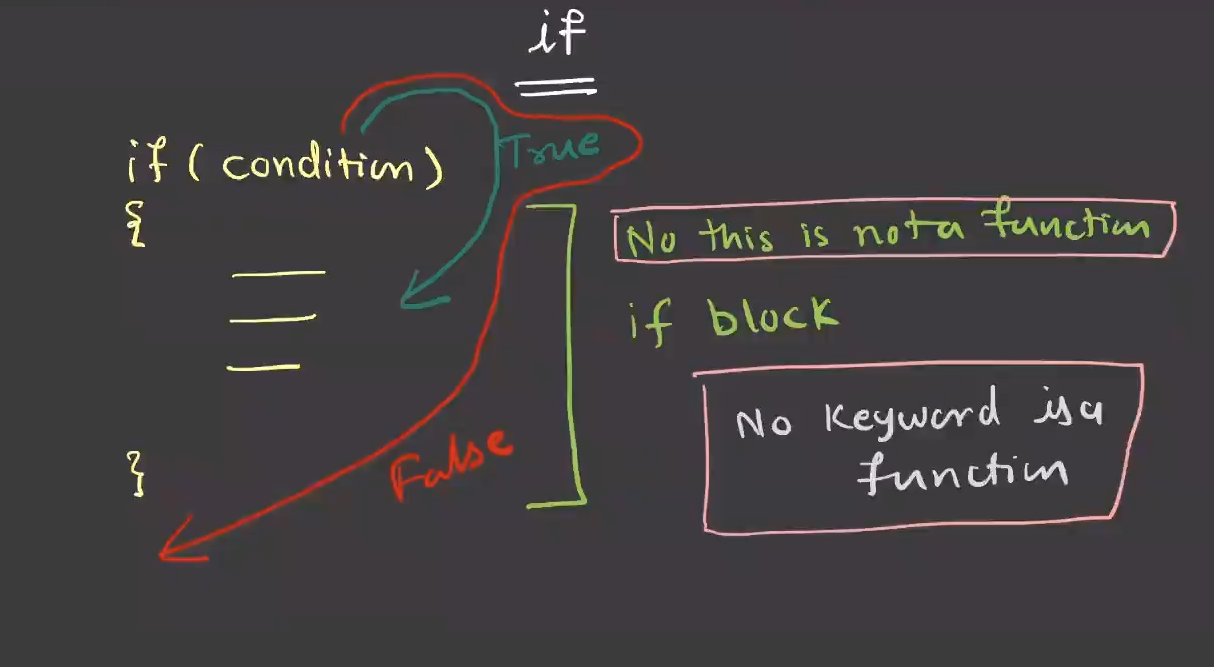 if
if ( condition )
True
{
No this is not a function
if block
No Keyword is a
function
}
False